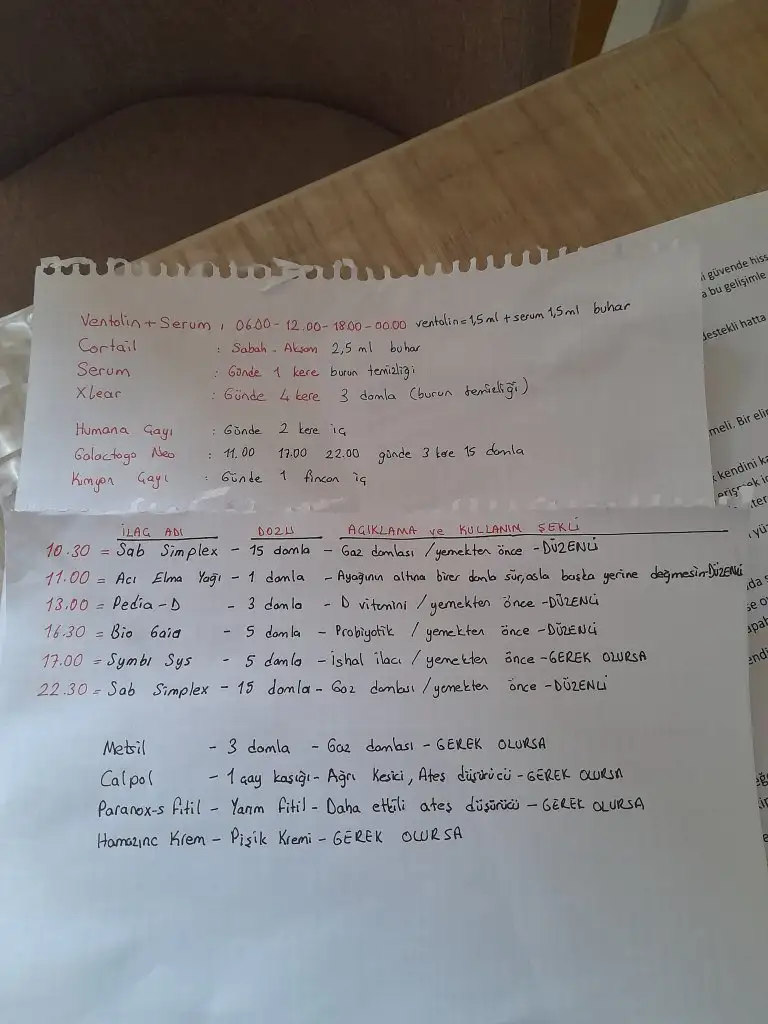 Ventolin + Serum : 06.00 - 12.00 - 18.00 - 00.00 ventolin = 1,5 ml + serum 1,5 ml buhar
Cortail : Sabah - Akşam 2,5 ml buhar
Serum : Günde 1 kere burun temizliği
Xlear : Günde 4 kere 3 damla (burun temizliği)
Humana Çayı : Günde 2 kere iç
Galactogo Neo : 11.00 17.00 22.00 günde 3 kere 15 damla
Kimyon Çayı : Günde 1 fincan iç
İLAÇ ADI DOZU AÇIKLAMA ve KULLANIN ŞEKLİ
10.30 = Sab Simplex - 15 damla - Gaz damlası / yemekten önce - DÜZENLİ
11.00 = Acı Elma Yağı - 1 damla - Ayağının altına birer damla sür, asla başka yerine değmesin - DÜZENLİ
13.00 = Pedia - D - 3 damla - D vitamini / yemekten önce - DÜZENLİ
16.30 = Bio Gaia - 5 damla - Probiyotik / yemekten önce - DÜZENLİ
17.00 = Symbi Sys - 5 damla - İshal ilacı / yemekten önce - GEREK OLURSA
22.30 = Sab Simplex - 15 damla - Gaz damlası / yemekten önce - DÜZENLİ
Metsil - 3 damla - Gaz damlası - GEREK OLURSA
Calpol - 1 çay kaşığı - Ağrı Kesici, Ateş düşürücü - GEREK OLURSA
Paranox-s fitil - Yarım fitil - Daha etkili ateş düşürücü - GEREK OLURSA
Hamazinc Krem - Pişik Kremi - GEREK OLURSA
güvende hiss
a bu gelişimle
destekli hatta
meli. Bir elin
kendini ka